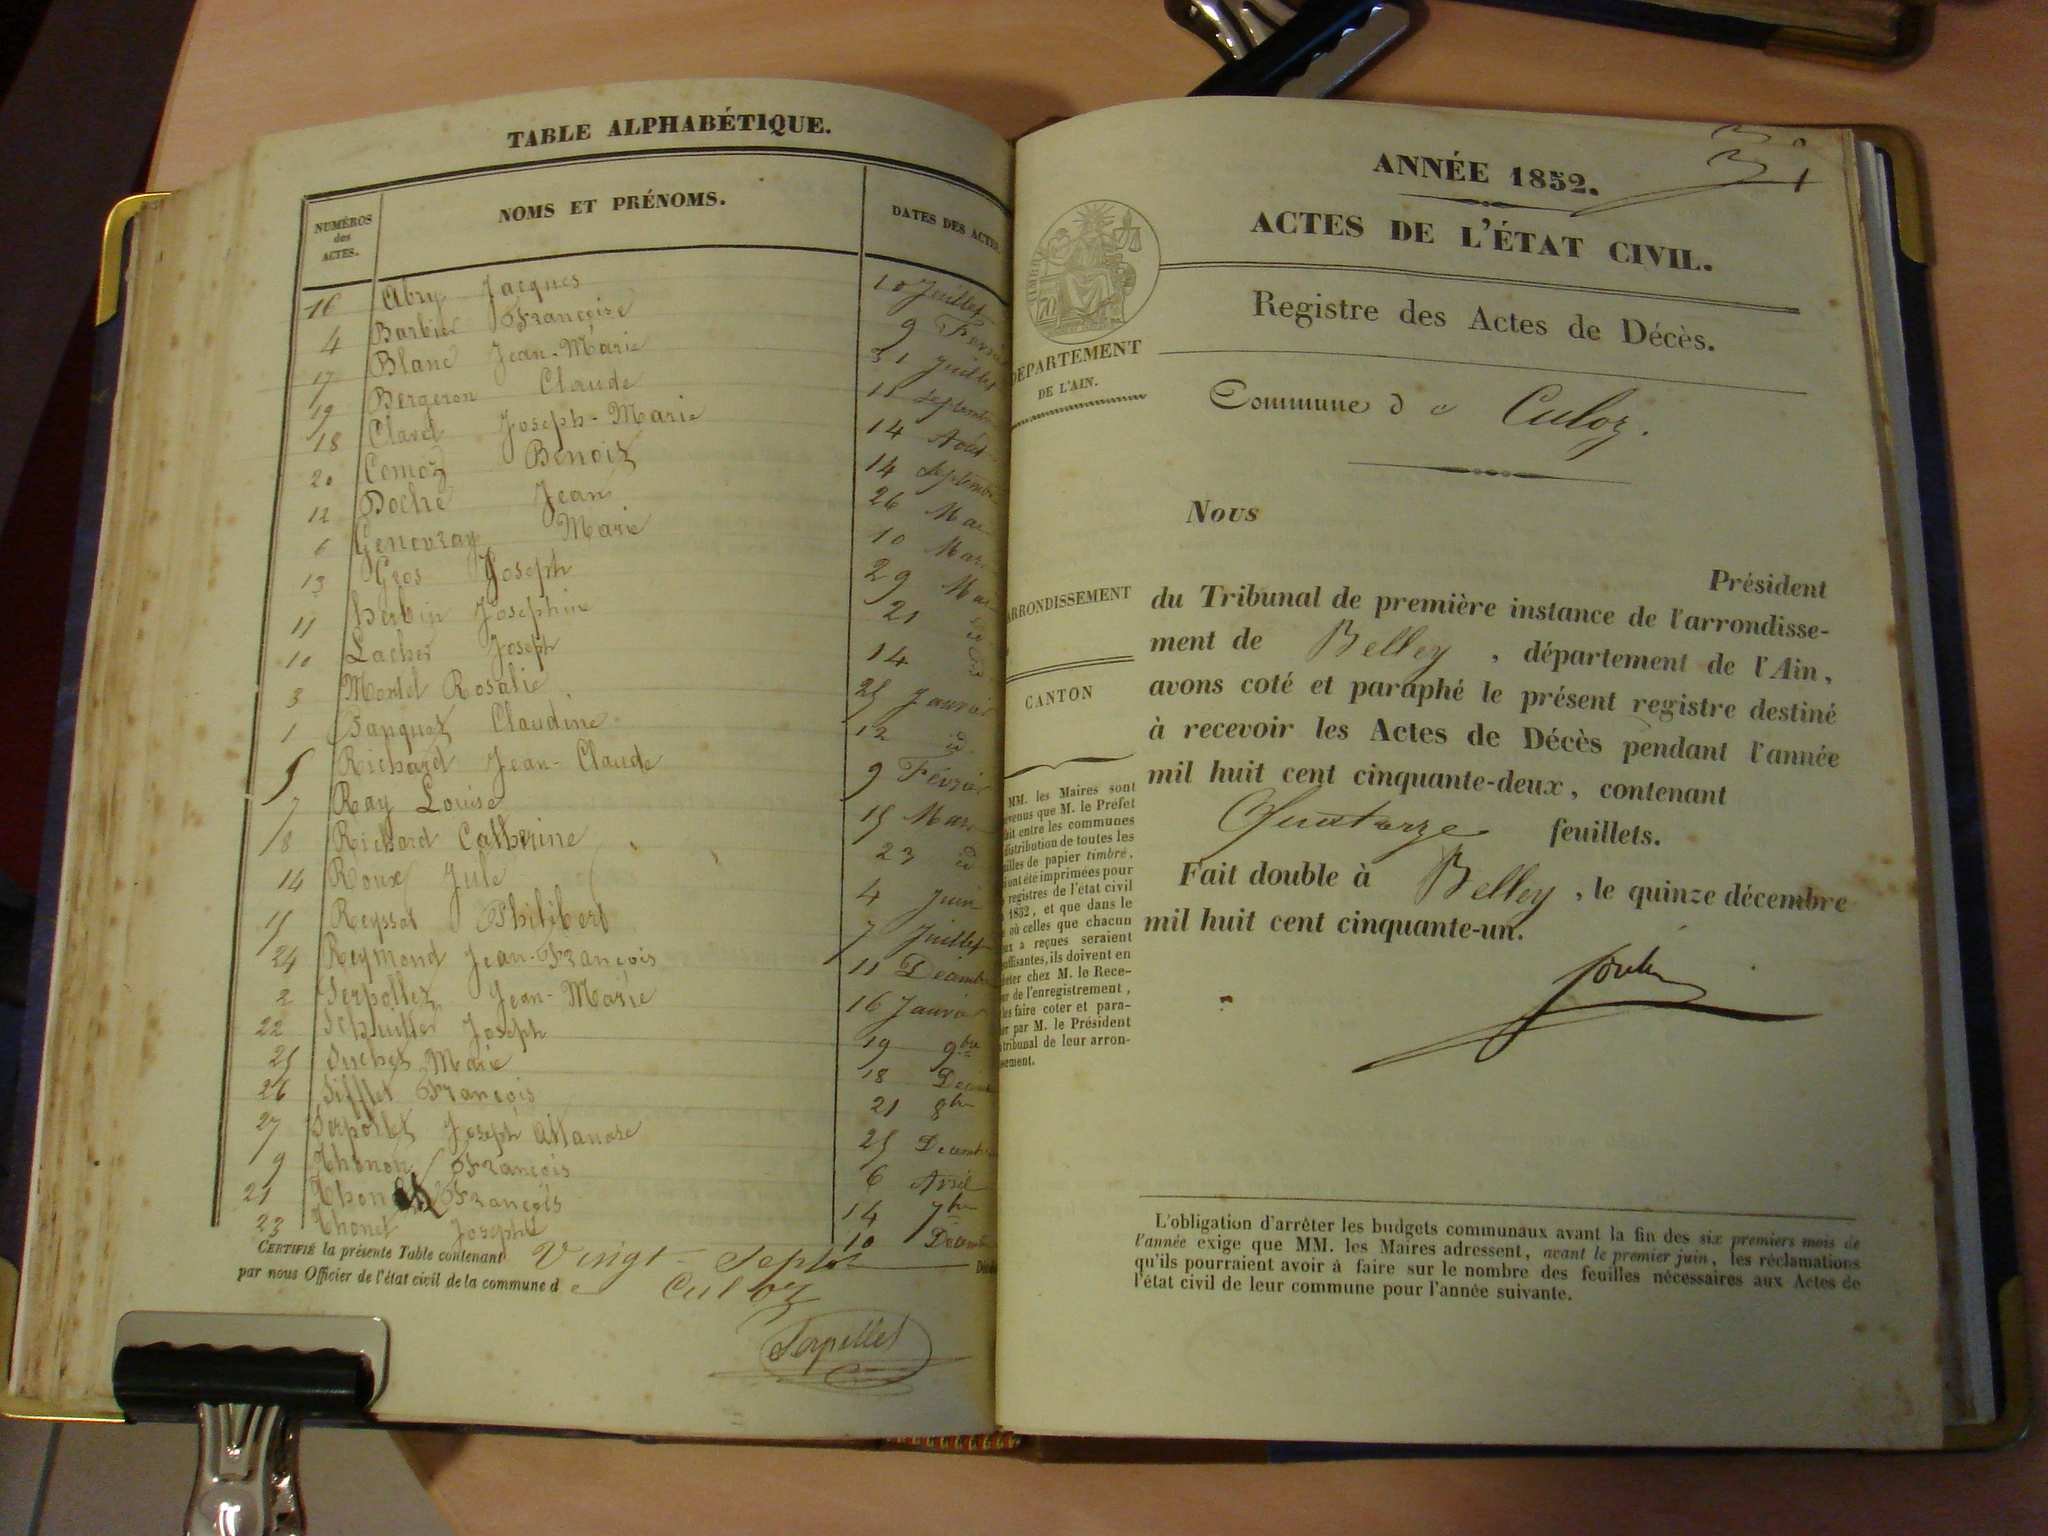 TABLE ALPHABÉTIQUE.
NUMÉROS des ACTES. NOMS ET PRÉNOMS. DATES DES ACTES
16 Abry Jacques 10 Juillet
4 Barbier Françoise 9
17 Blanc Jean-Marie 31 Juillet
19 Bergeron Claude 11 Septembre
18 Clavel Joseph-Marie 14 Août
20 Comoz Benoit 14 Septembre
12 Doche Jean 26
6 Genevray Marie 10 Mars
13 Gros Joseph 29
11 Herbin Josephine 21 id
10 Lacher Joseph 14 id
3 Martel Rosalie 25 Janvier
1 Claudine 12 id
5 Richard Jean-Claude 9 Février
7 Ray Louise 15 Mars
8 Richard Catherine 23 id
14 Roux Jule 4 Juin
15 Reyssat Philibert 7 Juillet
24 Reymond Jean-François 11 Décembre
2 Serpollet Jean-Marie 16 Janvier
22 Joseph 19 9bre
25 Suchet Marie 18
26 Sifflet François 21 8bre
27 Serpollet Joseph 25 Decembre
9 Thonon François 6 Avril
21 François 14 7bre
23 Thonet Josephte 10 Décembre
CERTIFIÉ la présente Table contenant Vingt-Sept
par nous Officier de l'état civil de la commune de Culoz
Serpollet
ANNÉE 1852.
ACTES DE L'ÉTAT CIVIL.
Registre des Actes de Décès.
DÉPARTEMENT
DE L'AIN.
Commune de Culoz.
Nous
Président
du Tribunal de première instance de l'arrondisse-
ment de Belley, département de l'Ain,
avons coté et paraphé le présent registre destiné
à recevoir les Actes de Décès pendant l'année
mil huit cent cinquante-deux, contenant
Quatorze feuillets.
Fait double à Belley, le quinze décembre
mil huit cent cinquante-un.
ARRONDISSEMENT
CANTON
MM. les Maires sont
que M. le Préfet
fait entre les communes
distribution de toutes les
de papier timbré,
ont été imprimées pour
registres de l'état civil
1852, et que dans le
où celles que chacun
a reçues seraient
ils doivent en
chez M. le Rece-
de l'enregistrement,
les faire coter et para-
par M. le Président
tribunal de leur arron-
L'obligation d'arrêter les budgets communaux avant la fin des six premiers mois de
l'année exige que MM. les Maires adressent, avant le premier juin, les réclamations
qu'ils pourraient avoir à faire sur le nombre des feuilles nécessaires aux Actes de
l'état civil de leur commune pour l'année suivante.